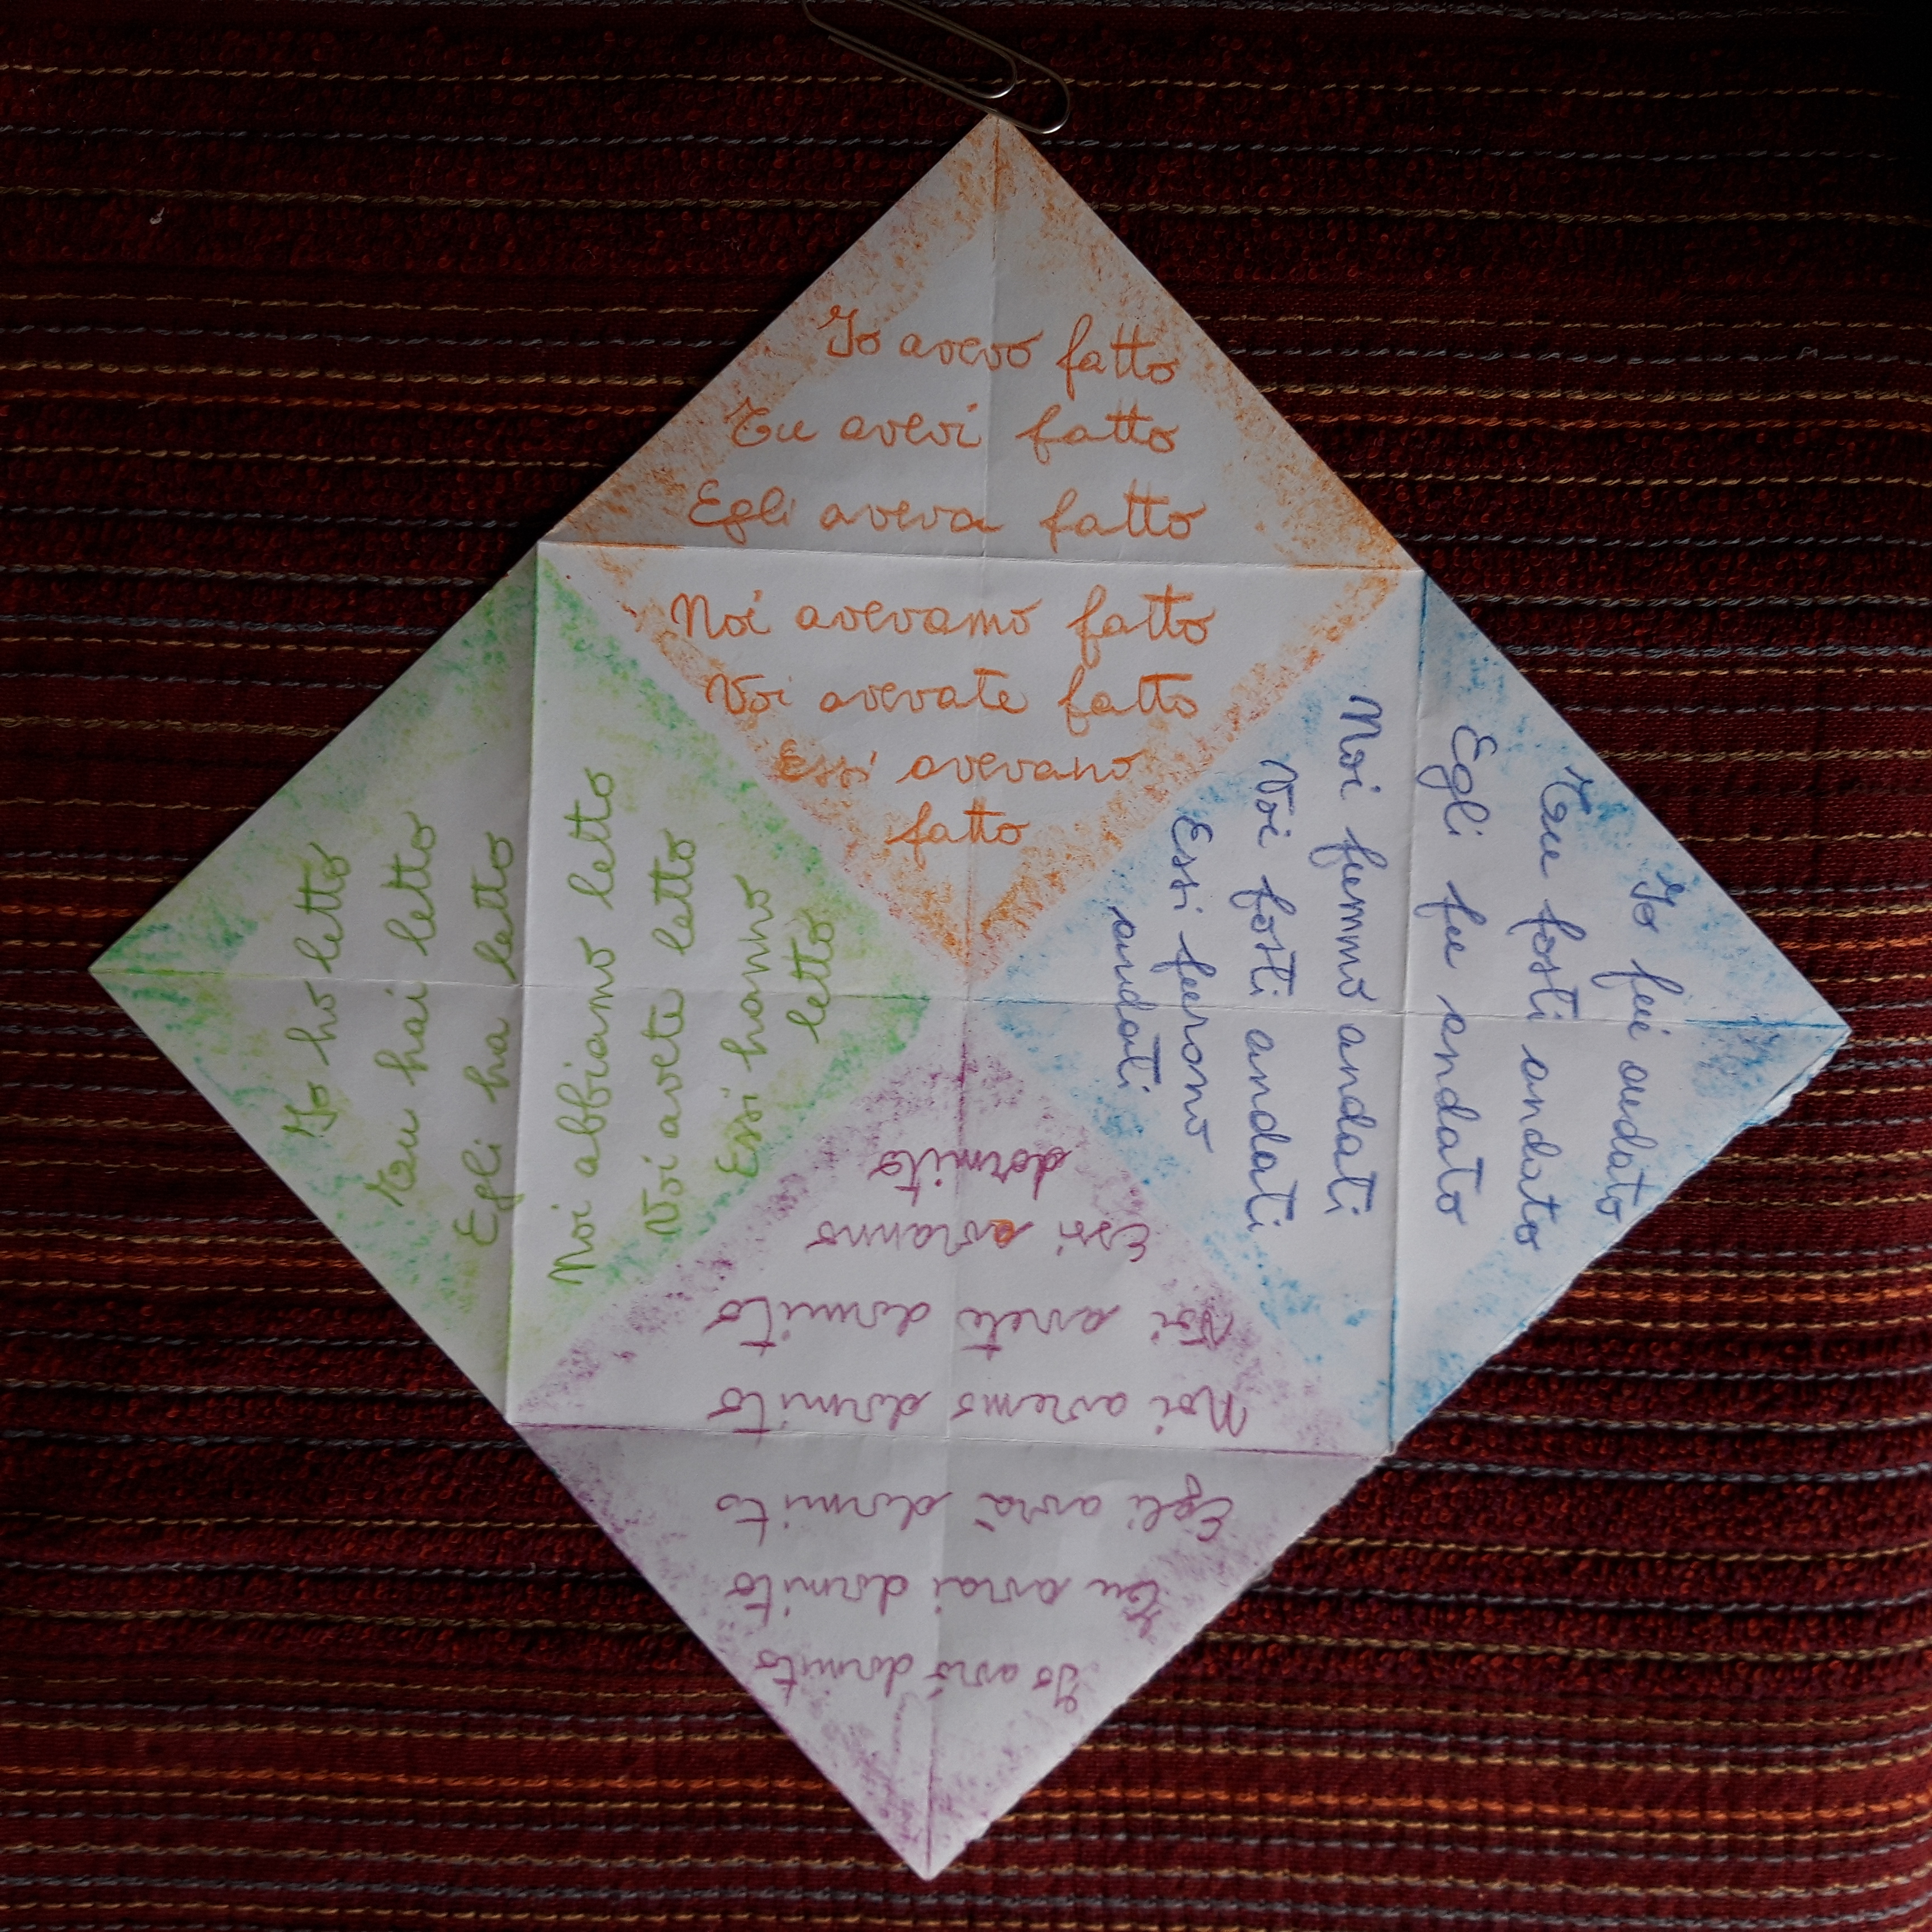 Io avevo fatto
Tu avevi fatto
Egli aveva fatto
Noi avevamo fatto
Voi avevate fatto
Essi avevano
fatto
Io fui andato
Tu fosti andato
Egli fu andato
Noi fummo andati
Voi fosti andati
Essi furono
andati
Io avrò dormito
Tu avrai dormito
Egli avrà dormito
Noi avremo dormito
Voi avrete dormito
Essi avranno
dormito
Io ho letto
Tu hai letto
Egli ha letto
Noi abbiamo letto
Voi avete letto
Essi hanno
letto